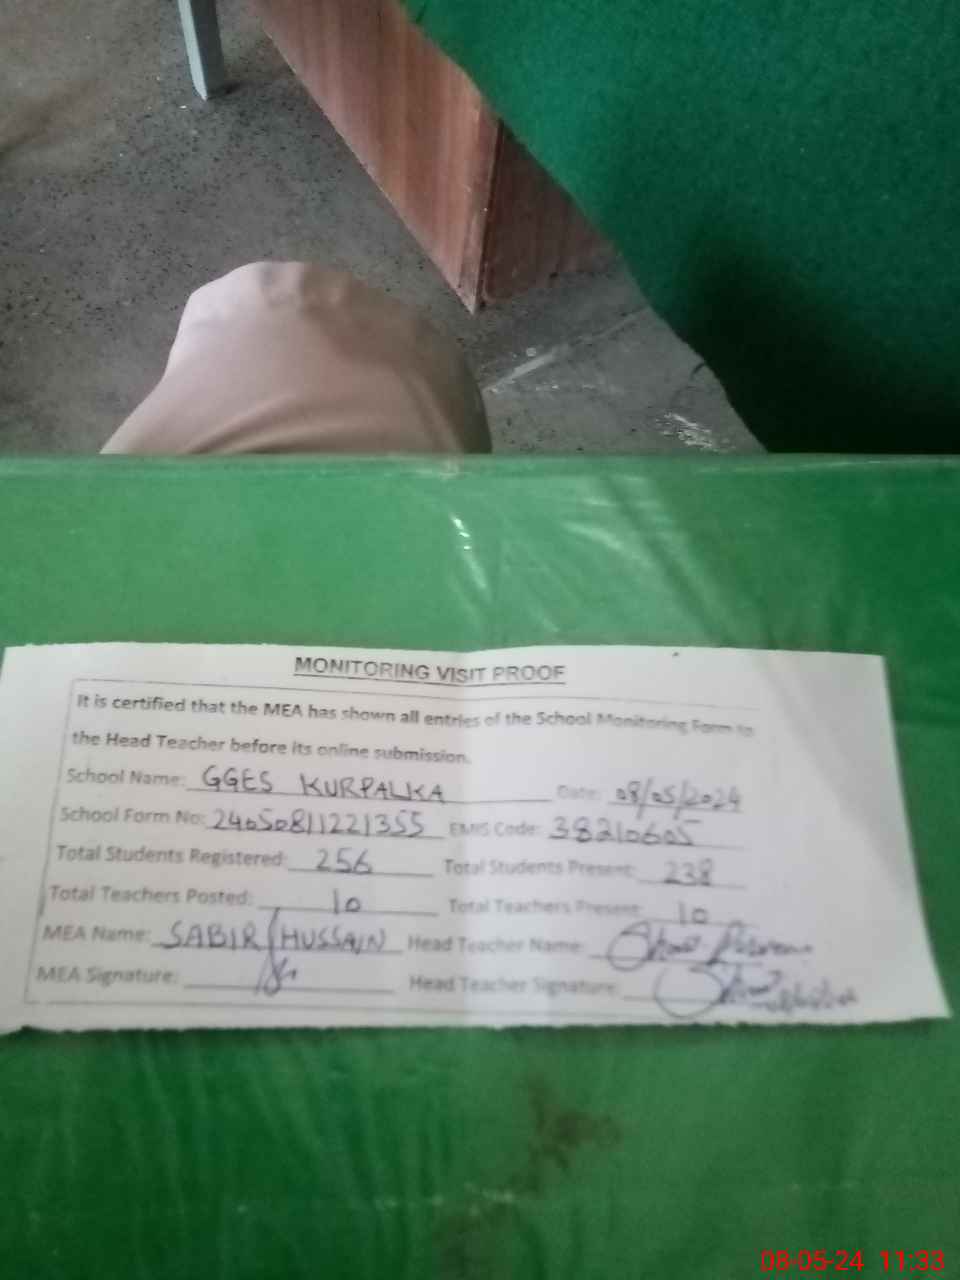 MONITORING VISIT PROOF
It is certified that the MEA has shown all entries of the School Monitoring Form to
the Head Teacher before its online submission.
School Name: GGES KURPALKA Date: 08/05/2024
School Form No: 24050811221355 EMIS Code: 38210605
Total Students Registered: 256 Total Students Present: 238
Total Teachers Posted: 10 Total Teachers Present: 10
MEA Name: SABIR HUSSAIN Head Teacher Name:
MEA Signature: Head Teacher Signature:
08-05-24 11:33